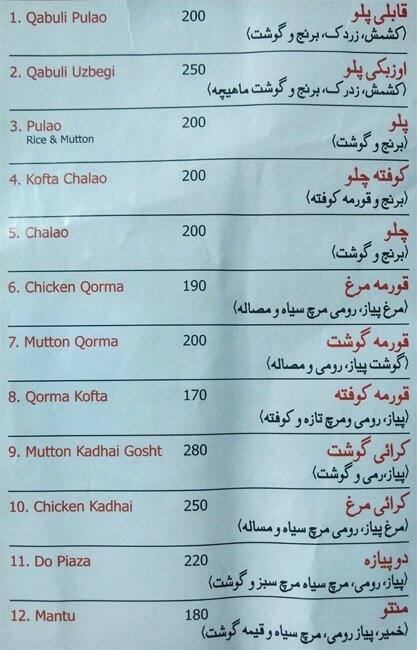 1. Qabuli Pulao 200 قابلی پلو
(کشمش، زردک، برنج و گوشت)
2. Qabuli Uzbegi 250 اوزبکی پلو
(کشمش، زدرک، برنج و گوشت ماهیچه)
3. Pulao 200 پلو
Rice & Mutton (برنج و گوشت)
4. Kofta Chalao 200 کوفته چلو
(برنج و قورمه کوفته)
5. Chalao 200 چلو
(برنج و گوشت)
6. Chicken Qorma 190 قورمه مرغ
(مرغ پیاز، رومی مرچ سیاه و مصاله)
7. Mutton Qorma 200 قورمه گوشت
(گوشت پیاز، رومی و مصاله)
8. Qorma Kofta 170 قورمه کوفته
(پیاز، رومی ومرچ تازه و کوفته)
9. Mutton Kadhai Gosht 280 کرائی گوشت
(پیاز،رمی و گوشت)
10. Chicken Kadhai 250 کرائی مرغ
(مرغ پیاز، رومی مرچ سیاه و مساله)
11. Do Piaza 220 دوپیازه
(پیاز، رومی، مرچ سیاه مرچ سبز و گوشت)
12. Mantu 180 منتو
(خمیر، پیاز رومی، مرچ سیاه و قیمه گوشت)